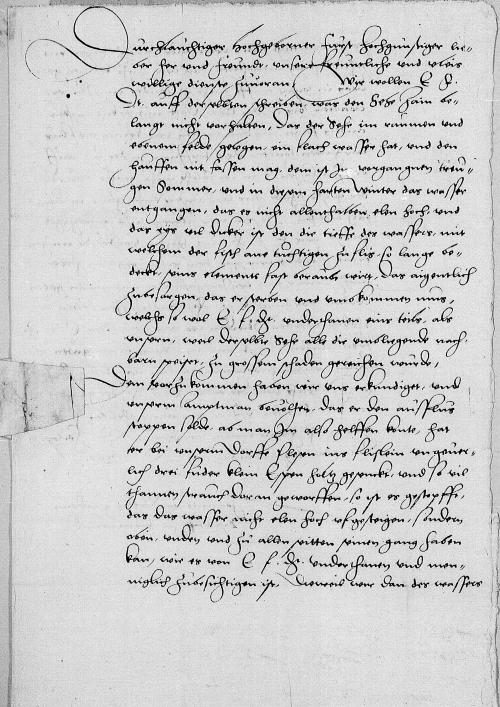 Durchlauchtiger Hochgeborner Furst Hochgunstiger lie-
ber her und freundt, unsere freuntliche und vleis
willige dienste zuvoran, Wir wollen E f.
Dt. auff derselbten schreiben, was den Sehe hain be-
langt nicht vorhalten, Das der Sehe im raumen und
ebenem felde gelegen, ein flach wasser hat, und den
hauffen nit fassen mag, dem ist In vorgangnen treu-
gen Sommer, und in diesem harten Winter das wasser
entgangen, das es nicht allenthalben elen hoch, und
das eys vil dicker ist den die tieffe des wassers, mit
welchem der fisch ane tuchtigen zuflis, so lange be-
deckt, seins elements fast beraubt wirt, das eigentlich
zubesorgen, das er sterben und umbkommen mus,
welchs so wol E. f. Dt. underthanen eins teils, als
unsern, weil derselbte Sehe alle die umbligende nach-
barn speiset, zu grossem schaden gereichen wurde,
Dem vorzukommen haben wir uns erkundiget, und
unserm hauptman bevolhen, das er den ausflus
stoppen solde, ab man Im also helffen konte, hat
er bei unserm Dorffe ins flislein ungever-
lich drei fuder klein Espen holtz gesenckt, und so vil
thannen strauch daran geworffen, so ist es gestopfft,
das das wasser nicht elen hoch ufgestigen, sondern
oben, unden und zu allen seitten seinen gang haben
kan, wie es von E. f. Dt. underthanen und men-
niglich zubesichtigen ist, Dieweil wir dan des wassers